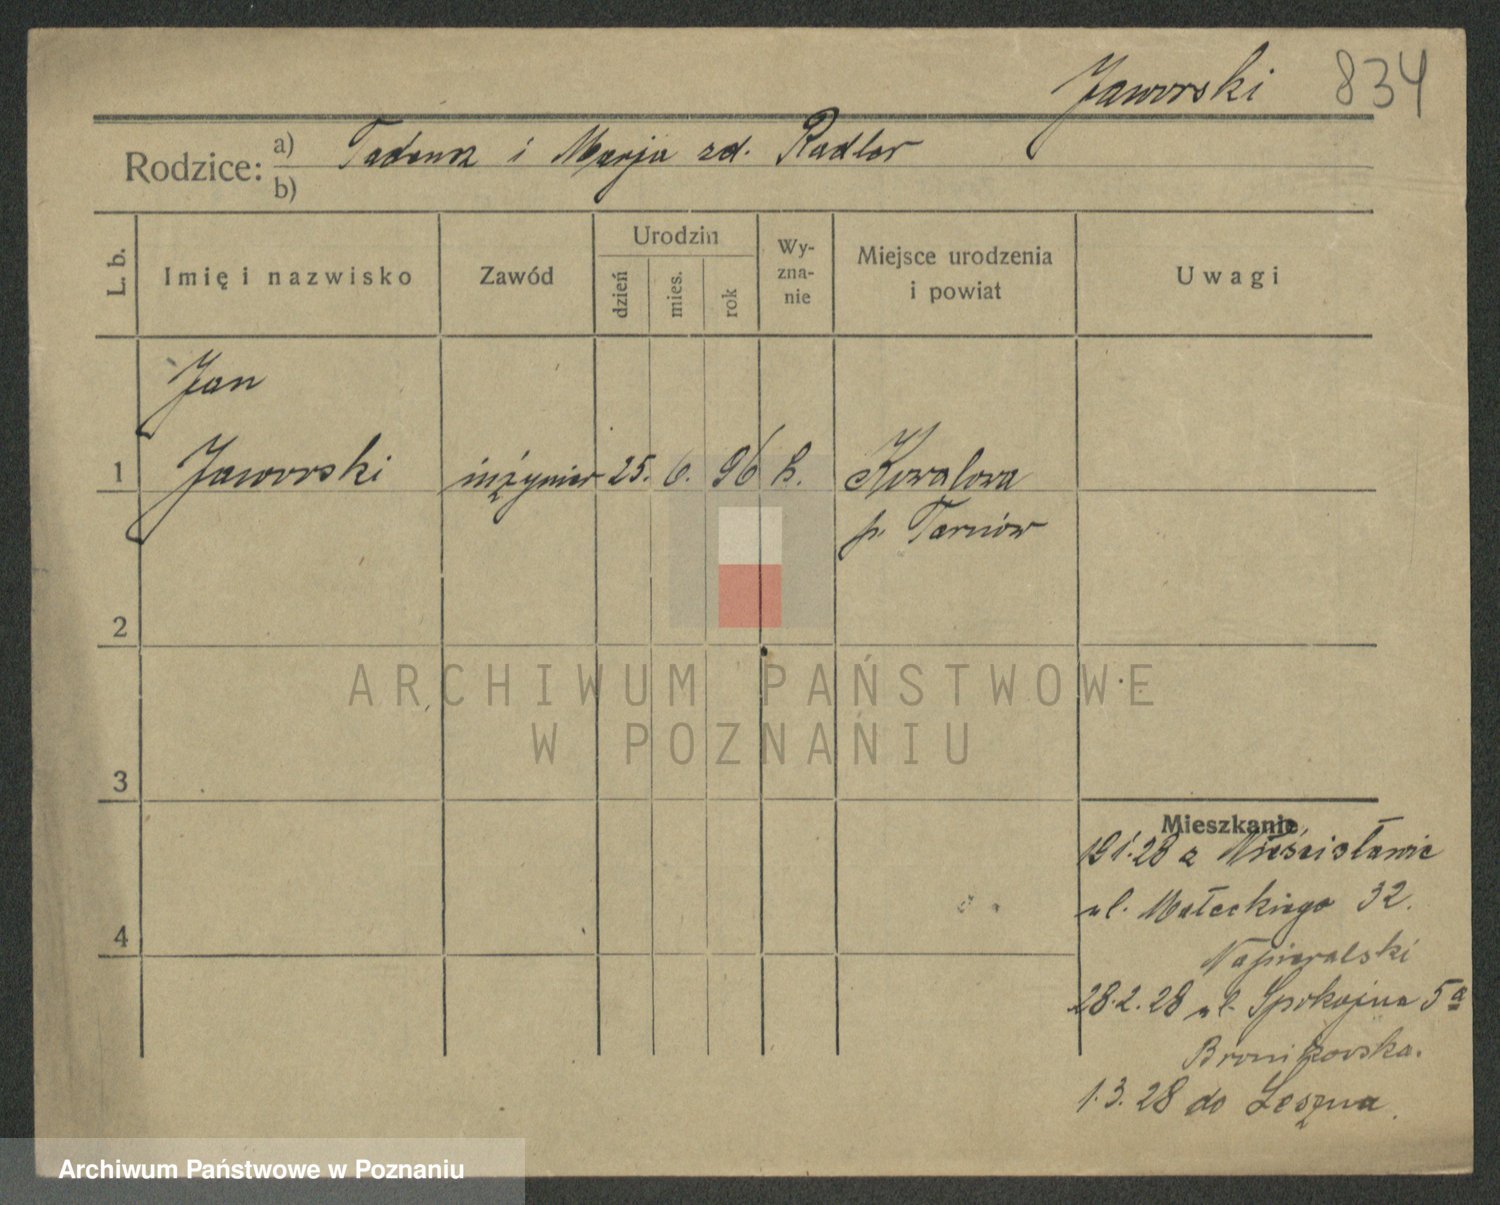 Jaworski 834
Rodzice: a) Tadeusz i Marja zd. Radler
b)
L. b. Imię i nazwisko Zawód Urodzin dzień mies. rok Wy-zna-nie Miejsce urodzenia i powiat Uwagi
Jan
1 Jaworski inżynier 25. 6. 96 k. Kowalowa
p. Tarnów
2
ARCHIWUM PAŃSTWOWE
W POZNANIU
3
Mieszkanie
19.1.28 z Mieścisławic
ul. Małeckiego 32.
Napieralski
4
28.2.28 ul. Spokojna 5a
Bronikowska.
1.3.28 do Leszna.
Archiwum Państwowe w Poznaniu